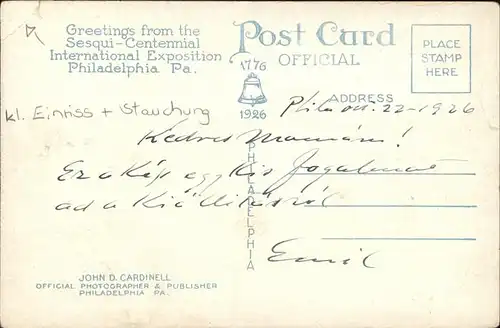 Greetings from the
Sesqui-Centennial
International Exposition
Philadelphia Pa.
Post Card
OFFICIAL
1776
1926
PLACE
STAMP
HERE
ADDRESS
kl. Einriss + Stauchung
Phila oct. 22-1926
Kedves Mamám!
Ez a kép egy kis fogalmat
ad a Kiállitásról
Emil
PHILADELPHIA
JOHN D. CARDINELL
OFFICIAL PHOTOGRAPHER & PUBLISHER
PHILADELPHIA PA.